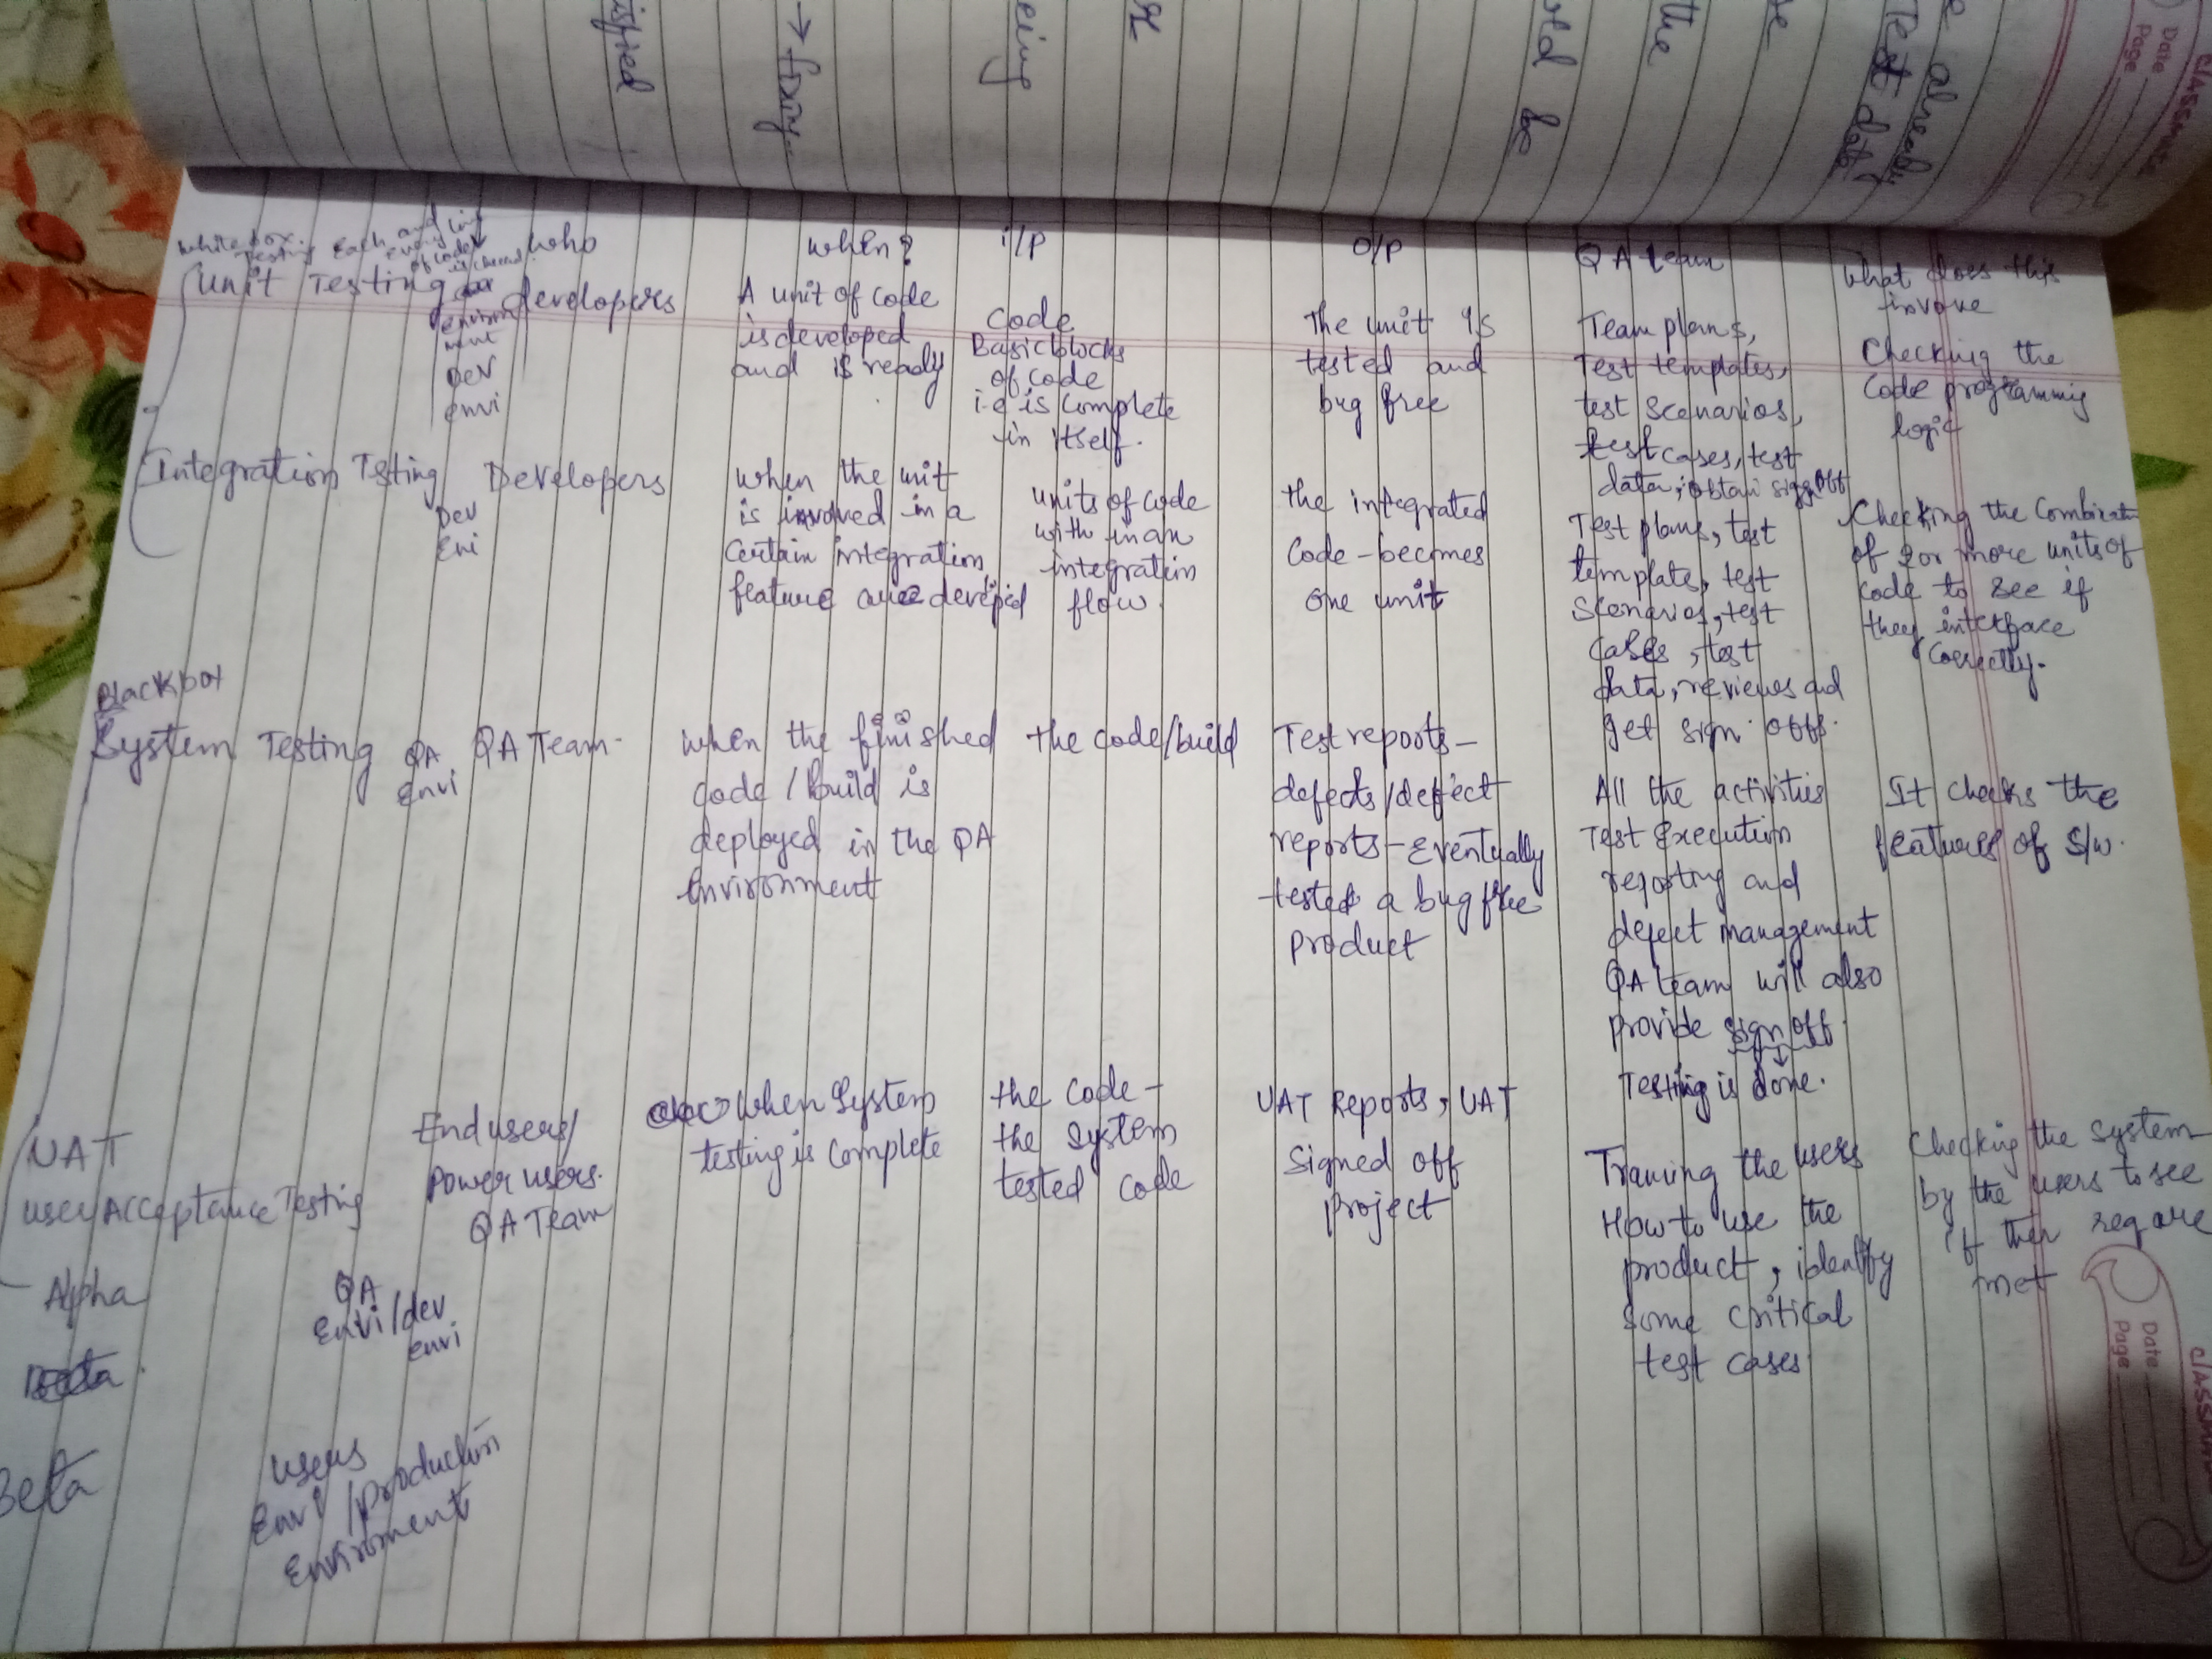 e already
Test data
se
the
uld be
eing
→ fixing..
isfied
classmate
Date
Page
White box
Testing Each and
every line
of code
is checked
Who
When?
i/p
O/P
QA team
What does this
invove
Unit Testing
environ
ment
DEV
envi
developers
A unit of code
is developed
and is ready
Code
Basic blocks
of code
i.e is complete
in itself.
The unit is
tested and
bug free
Team plans,
Test templates,
test scenarios,
test cases, test
data, obtain sign off
Checking the
Code programming
logic
Integration Testing
Dev
Eni
Developers
when the unit
is involved in a
certain integration
feature are develpied
units of code
with in an
integration
flow.
the integrated
Code-becomes
one unit
Test plans, test
template, test
scenarios, test
cases, test
data, reviews and
get sign offs.
Checking the Combination
of 2 or more units of
code to see if
they interface
Correctly.
Blackbox
System Testing
QA
envi
QA Team
when the finished
code / build is
deployed in the QA
Environment
the code/build
Test reports-
defects/defect
reports-Eventually
tested a bug free
product
All the activities
Test Execution
reporting and
defect management
QA team will also
provide sign off.
↓
Testing is done.
It checks the
features of S/w.
UAT
User Acceptance Testing
End users/
Power users.
QA Team
When System
testing is complete
the code-
the system
tested code
UAT Reports, UAT
Signed off
project
Traning the users
How to use the
product, identify
some critical
test cases
Checking the System
by the users to see
if ther req are
met
Alpha
QA
Envi/dev
envi
Beta
Beta
users
Envi/production
Environment
classmate
Date
Page